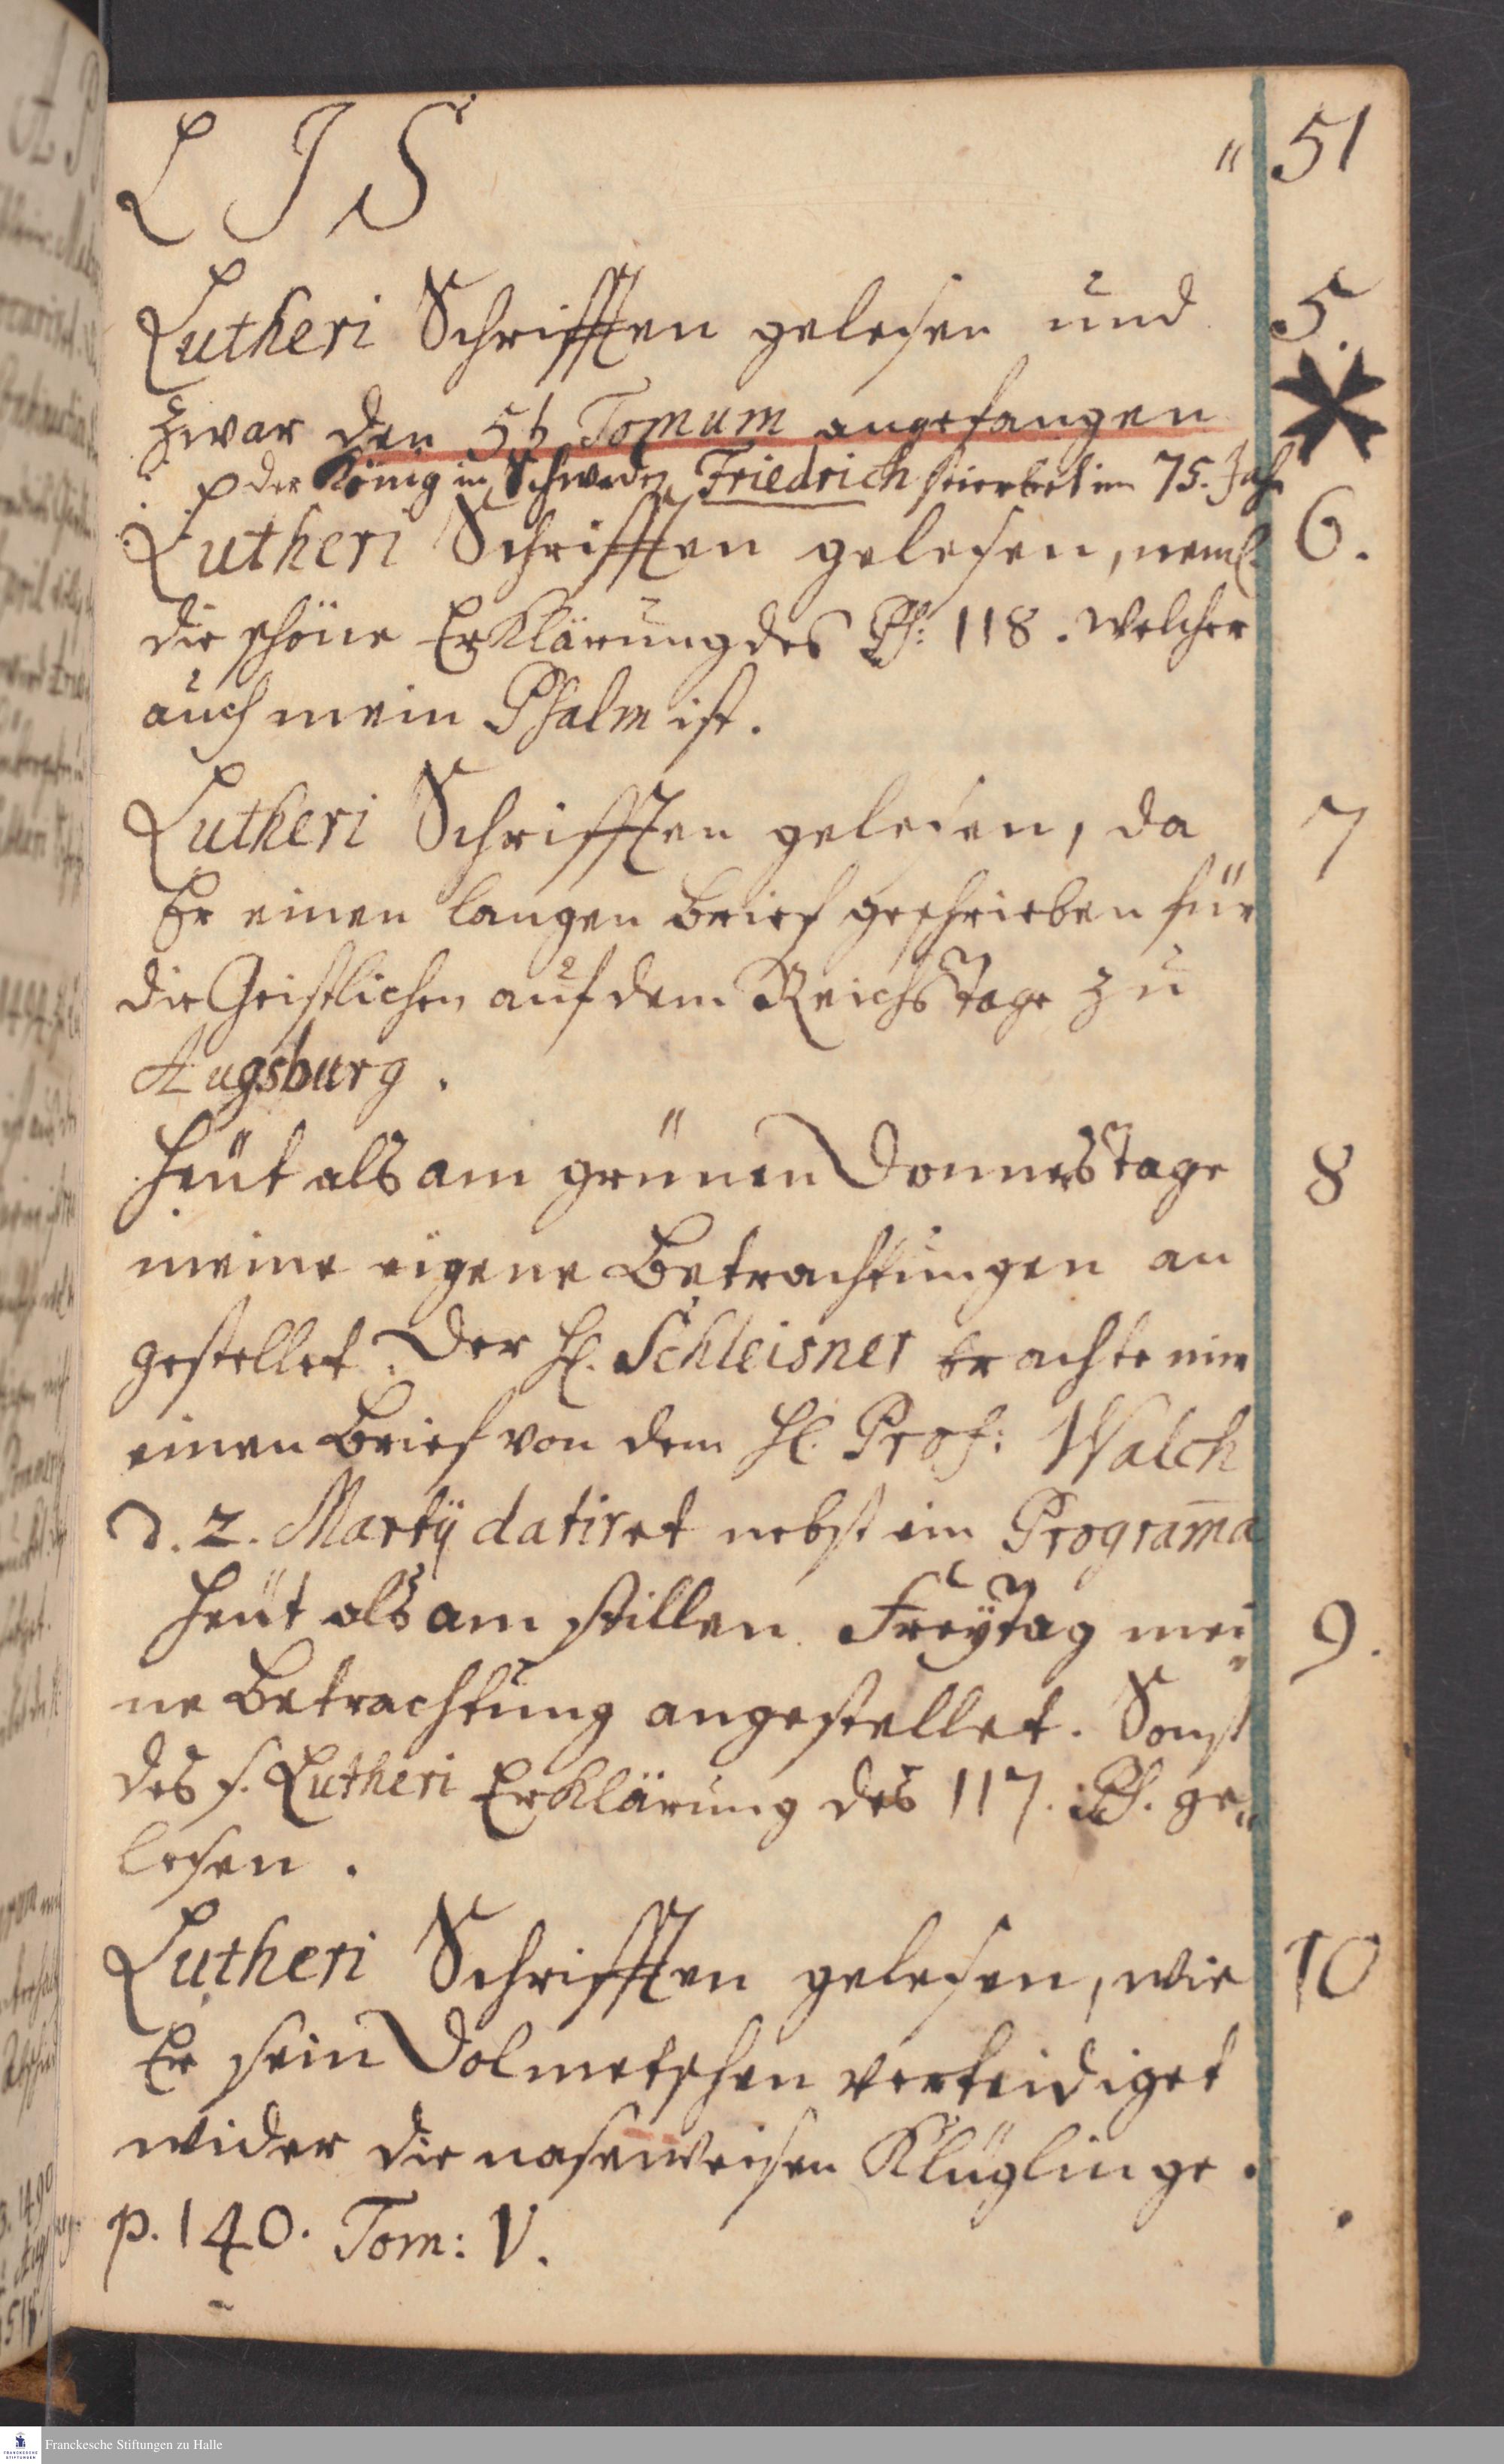 L I S " 51
Lutheri Schrifften gelesen und 5.
zwar den 5t Tomum angefangen
der König in Schweden Friedrich stierbet im 75. Jahr
Lutheri Schrifften gelesen, neml. 6.
die schöne Erklärung des Ps: 118. welcher
auch mein Psalm ist.
Lutheri Schrifften gelesen, da 7
Er einen langen Brief geschrieben für
die Geistlichen auf dem Reichstage zu
Augsburg.
Heüt als am grünen Donnerstage 8
meine eigene Betrachtungen an
gestellet. Der H. Schleisner brachte mir
einen Brief von dem H. Prof: Walch
d. 2. Martÿ datiret nebst ein Programa
Heüt als am stillen Freÿtag mei 9.
ne Betrachtung angestellet. Sonst
des s. Lutheri Erklärung des 117. Ps. ge„
lesen.
Lutheri Schrifften gelesen, wie 10
Er sein Dolmetschen verteidiget
wider die nasenweisen Klüglinge.
p. 140. Tom: V.
Franckesche Stiftungen zu Halle